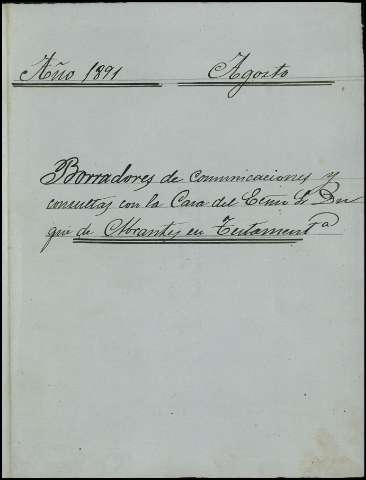 Año 1891 Agosto
Borradores de comunicaciones y
consultas con la Casa del Excmo Sr Du
que de Abrantes en Testamentª